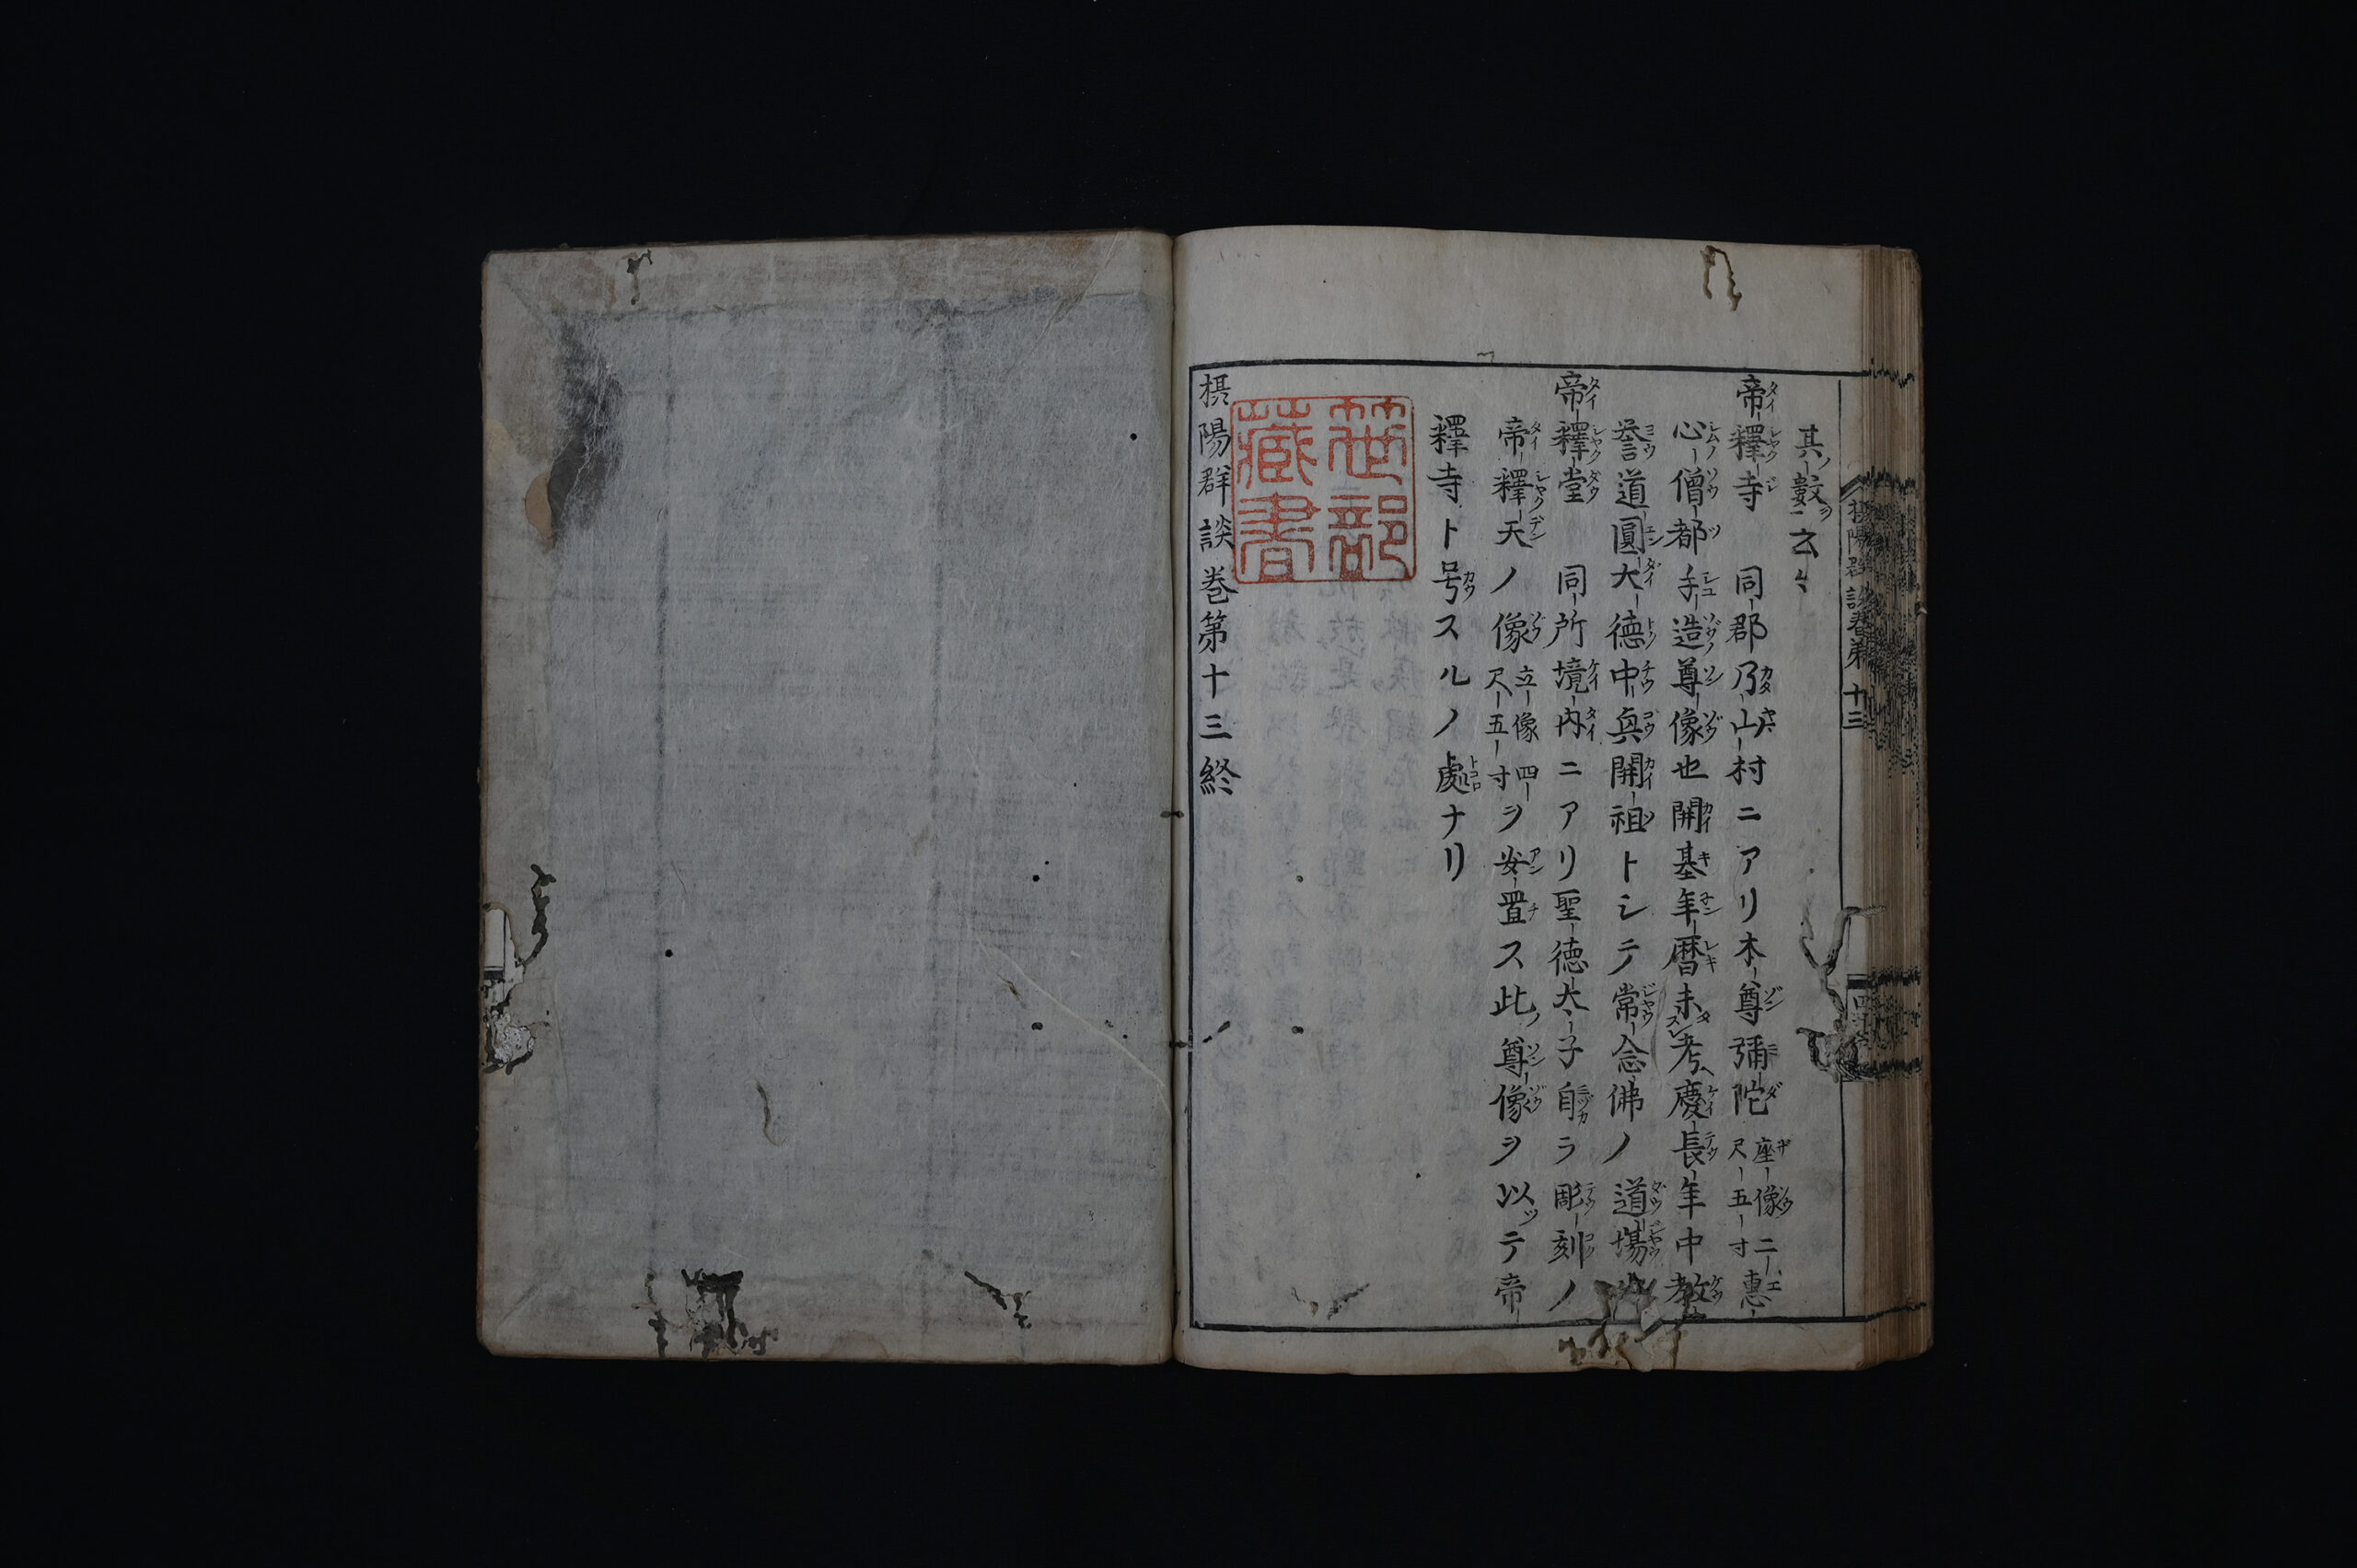 摂陽群談巻第十三
其ノ數ニ云々
帝釋寺　同郡乃山村ニアリ本尊彌陀座像二尺五寸惠
心僧都手造尊像也開基年暦未考慶長年中教
誉道圓大徳中興開祖トシテ常念佛ノ道場
帝釋堂　同所境内ニアリ聖徳太子自ラ彫刻ノ
帝釋天ノ像立像四尺五寸ヲ安置ス此尊像ヲ以ッテ帝
釋寺ト号スルノ處ナリ
摂陽群談巻第十三終
藏書